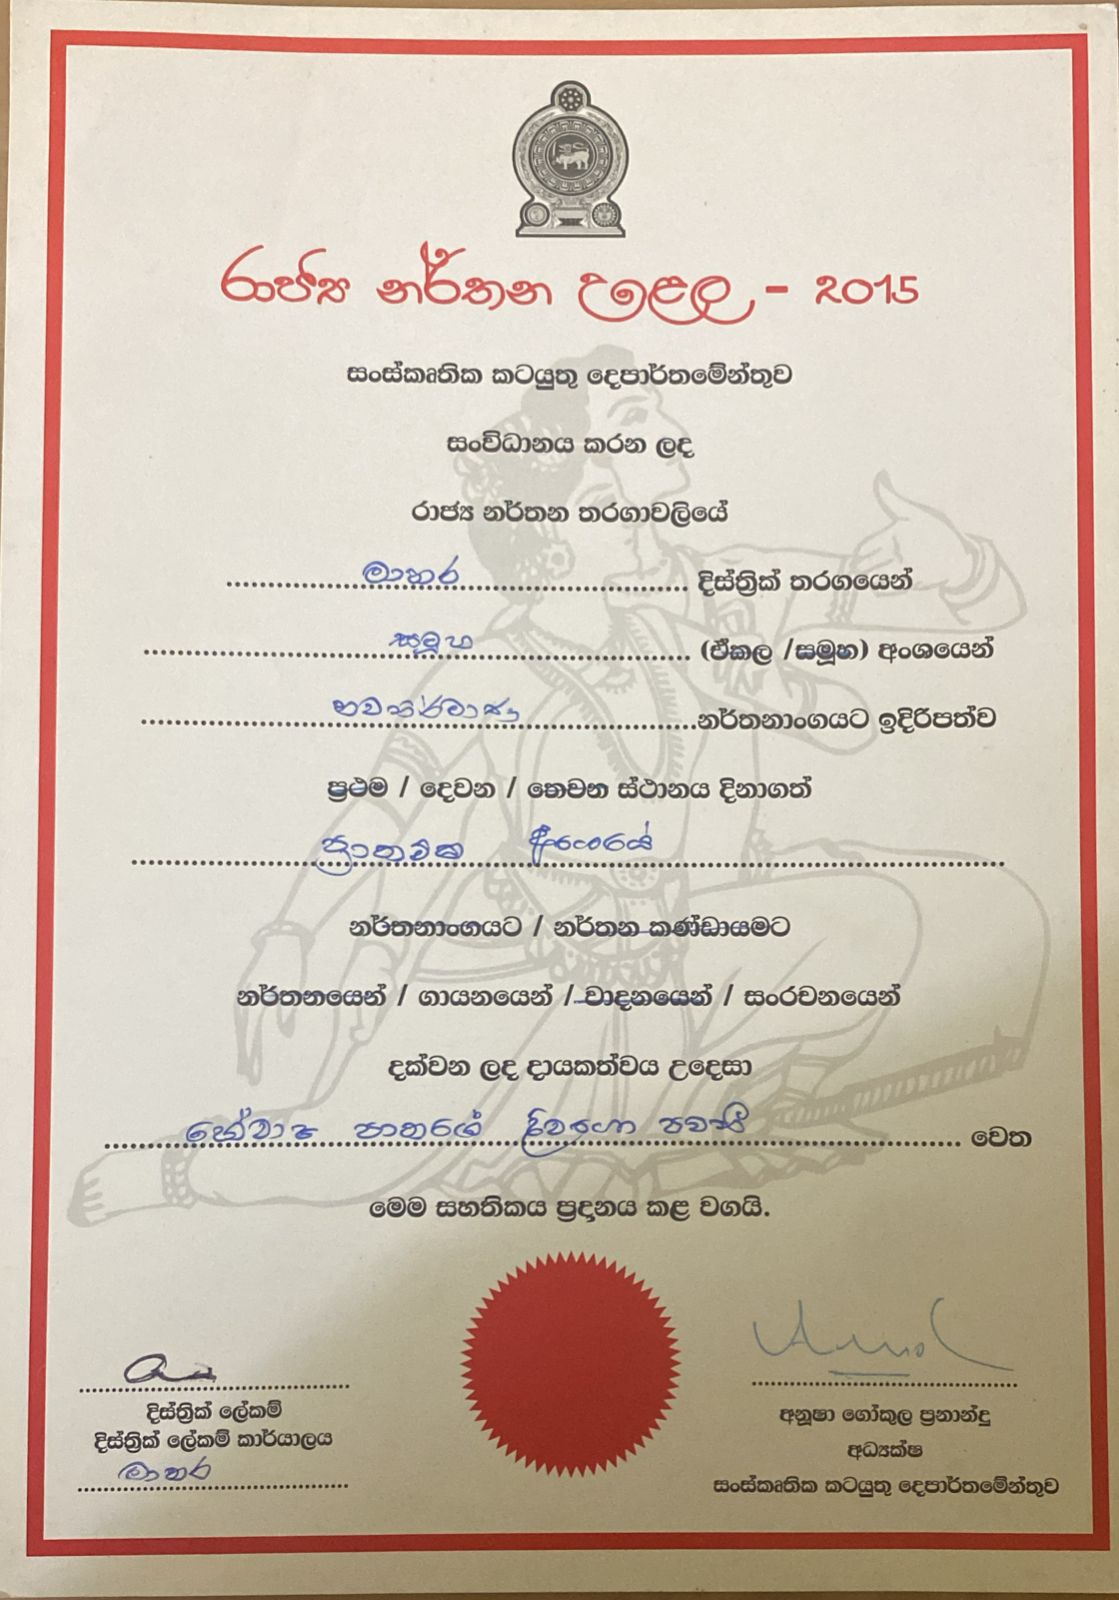 රාජ්‍ය නර්තන උළෙල - 2015
සංස්කෘතික කටයුතු දෙපාර්තමේන්තුව
සංවිධානය කරන ලද
රාජ්‍ය නර්තන තරගාවලියේ
මාතර දිස්ත්‍රික් තරගයෙන්
සමූහ (ඒකල /සමූහ) අංශයෙන්
නවනිර්මාණ නර්තනාංගයට ඉදිරිපත්ව
ප්‍රථම / දෙවන / තෙවන ස්ථානය දිනාගත්
නර්තනාංගයට / නර්තන කණ්ඩායමට
නර්තනයෙන් / ගායනයෙන් / වාදනයෙන් / සංරචනයෙන්
දක්වන ලද දායකත්වය උදෙසා
හේවාප පාතරගේ වෙත
මෙම සහතිකය ප්‍රදානය කළ වගයි.
දිස්ත්‍රික් ලේකම්
දිස්ත්‍රික් ලේකම් කාර්යාලය
මාතර
අනූෂා ගෝකුල ප්‍රනාන්දු
අධ්‍යක්ෂ
සංස්කෘතික කටයුතු දෙපාර්තමේන්තුව